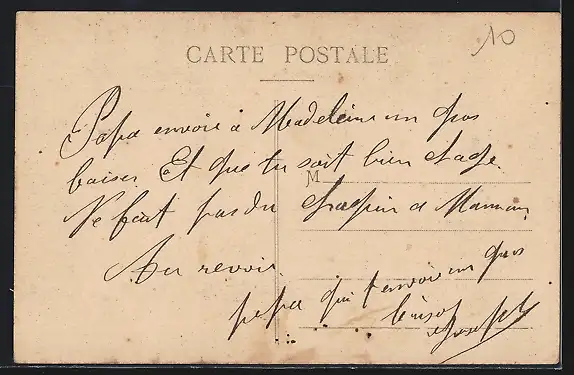 10
CARTE POSTALE
Papa envoie a Madeleine un gros
baiser Et que tu soit bien sage
M
Ne fait pas du chagrin a Maman
Au revoir
papa qui t envoie un gros
baiser
Joseph